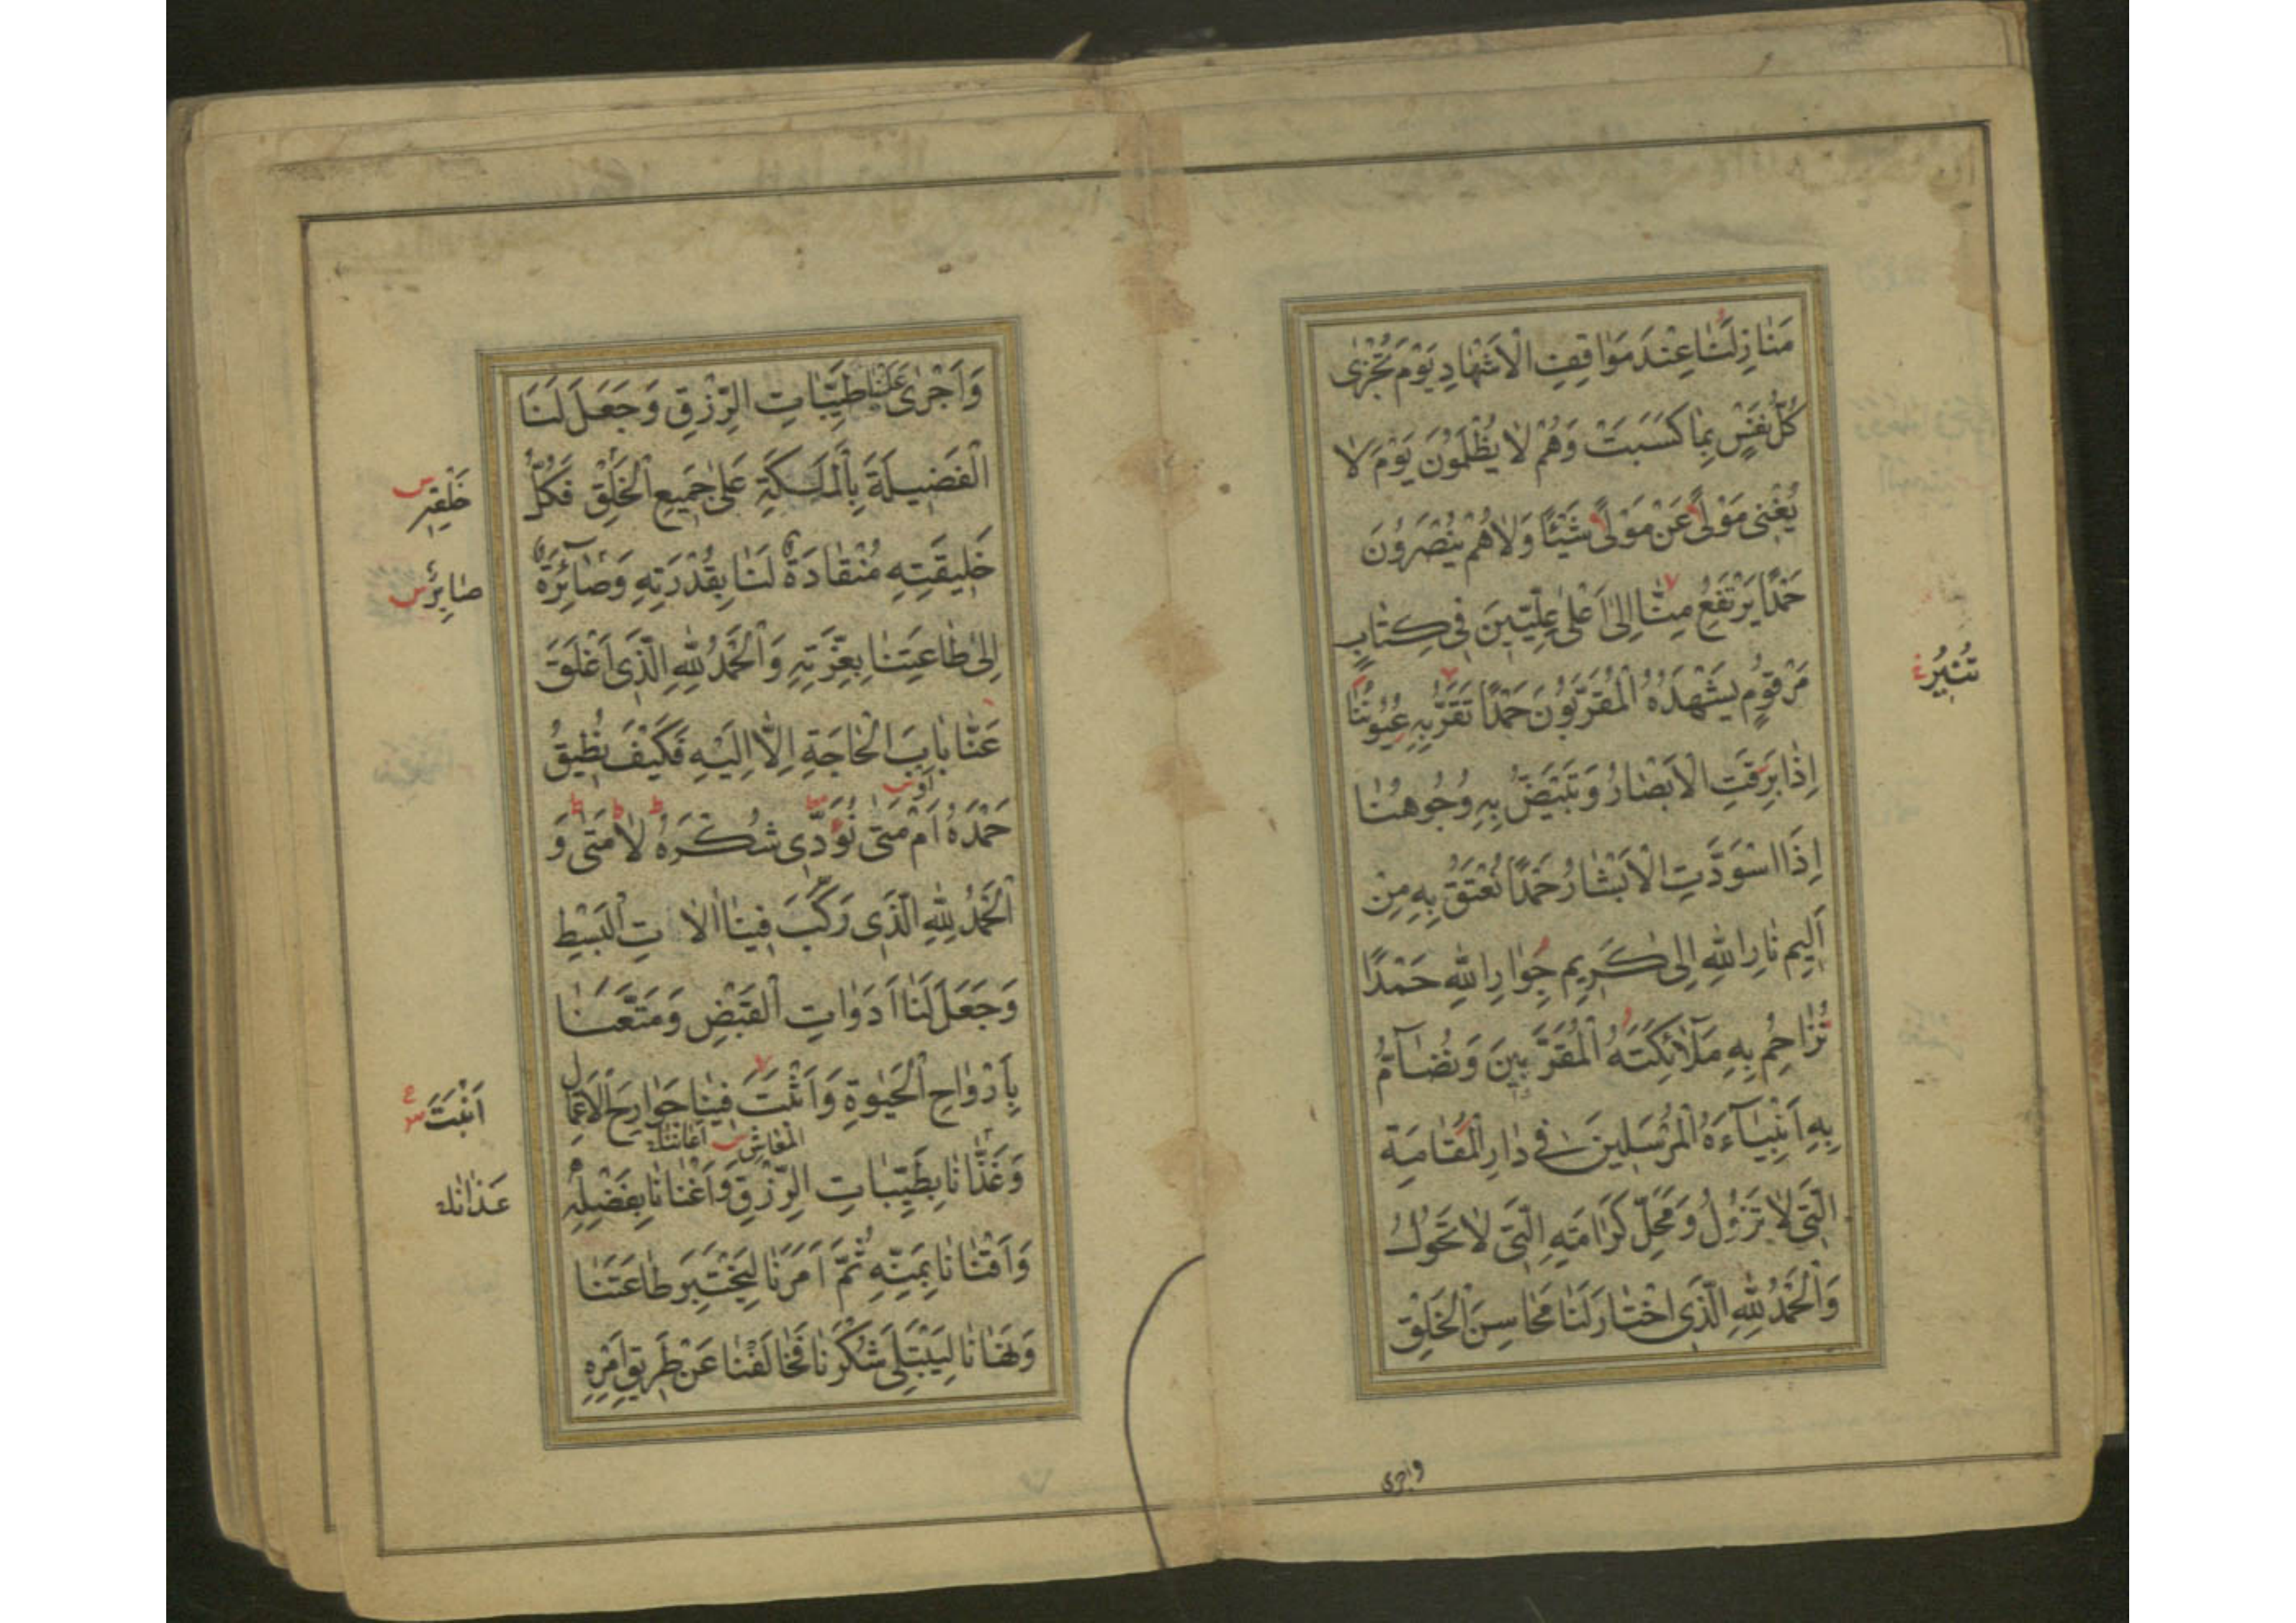 مَنَازِلَنَا عِنْدَ مَوَاقِفِ الْاَشْهَادِ يَوْمَ تُجْزٰى
كُلُّ نَفْسٍ بِمَا كَسَبَتْ وَهُمْ لَا يُظْلَمُونَ يَوْمَ لَا
يُغْنِى مَوْلًى عَنْ مَوْلًى شَيْئًا وَلَا هُمْ يُنْصَرُونَ
حَمْدًا يَرْتَفِعُ مِنَّا اِلٰى اَعْلٰى عِلِّيِّينَ فِى كِتَابٍ
مَرْقُومٍ يَشْهَدُهُ الْمُقَرَّبُونَ حَمْدًا تَقَرُّ بِهِ عُيُونُنَا
اِذَا بَرِقَتِ الْاَبْصَارُ وَتَبْيَضُّ بِهِ وُجُوهُنَا
اِذَا اسْوَدَّتِ الْاَبْشَارُ حَمْدًا نُعْتَقُ بِهِ مِنْ
اَلِيمِ نَارِ اللهِ اِلٰى كَرِيمِ جِوَارِ اللهِ حَمْدًا
نُزَاحِمُ بِهِ مَلٰٓائِكَتَهُ الْمُقَرَّبِينَ وَنُضَآمُّ
بِهِ اَنْبِيَآءَهُ الْمُرْسَلِينَ فِى دَارِ الْمُقَامَةِ
الَّتِى لَا تَزُولُ وَمَحَلِّ كَرَامَتِهِ الَّتِى لَا تَحُولُ
وَالْحَمْدُ لِلّٰهِ الَّذِى اخْتَارَ لَنَا مَحَاسِنَ الْخَلْقِ
تُنِيرُ
واجرى
وَاَجْرٰى عَلَيْنَا طَيِّبَاتِ الرِّزْقِ وَجَعَلَ لَنَا
الْفَضِيلَةَ بِالْمَلَكَةِ عَلٰى جَمِيعِ الْخَلْقِ فَكُلُّ
خَلِيقَتِهِ مُنْقَادَةٌ لَنَا بِقُدْرَتِهِ وَصَآئِرَةٌ
اِلٰى طَاعَتِنَا بِعِزَّتِهِ وَالْحَمْدُ لِلّٰهِ الَّذِى اَغْلَقَ
عَنَّا بَابَ الْحَاجَةِ اِلَّا اِلَيْهِ فَكَيْفَ نُطِيقُ
اَوْ س
حَمْدَهُ اَمْ مَتٰى نُؤَدِّى شُكْرَهُ لَا مَتٰى وَ
الْحَمْدُ لِلّٰهِ الَّذِى رَكَّبَ فِينَا اٰلَاتِ الْبَسْطِ
وَجَعَلَ لَنَا اَدَوَاتِ الْقَبْضِ وَمَتَّعَنَا
بِاَرْوَاحِ الْحَيٰوةِ وَاَثْبَتَ فِينَا جَوَارِحَ الْاَعْمَالِ
المَعَاشِ س
وَغَذَّانَا بِطَيِّبَاتِ الرِّزْقِ وَاَغْنَانَا بِفَضْلِهِ
وَاَقْنَانَا بِمَنِّهِ ثُمَّ اَمَرَنَا لِيَخْتَبِرَ طَاعَتَنَا
وَنَهَانَا لِيَبْتَلِىَ شُكْرَنَا فَخَالَفْنَا عَنْ طَرِيقِ اَمْرِهِ
خَلْقِهِ س
صَايِرٌ س
اَنْبَتَ ع س